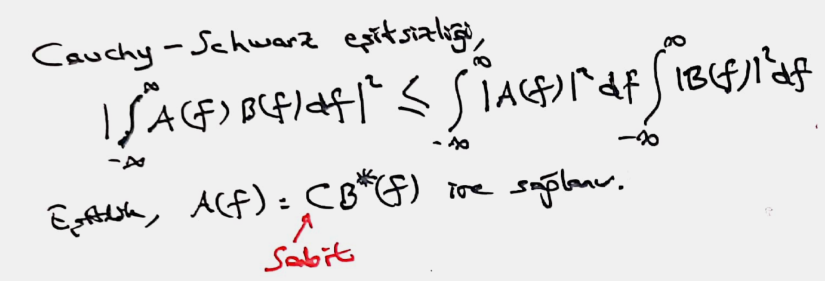 Cauchy - Schwarz eşitsizliği,
|∫_{-∞}^{∞} A(f) B(f) df|² ≤ ∫_{-∞}^{∞} |A(f)|² df ∫_{-∞}^{∞} |B(f)|² df
Eşitlik, A(f) = C B*(f) ise sağlanır.
Sabit